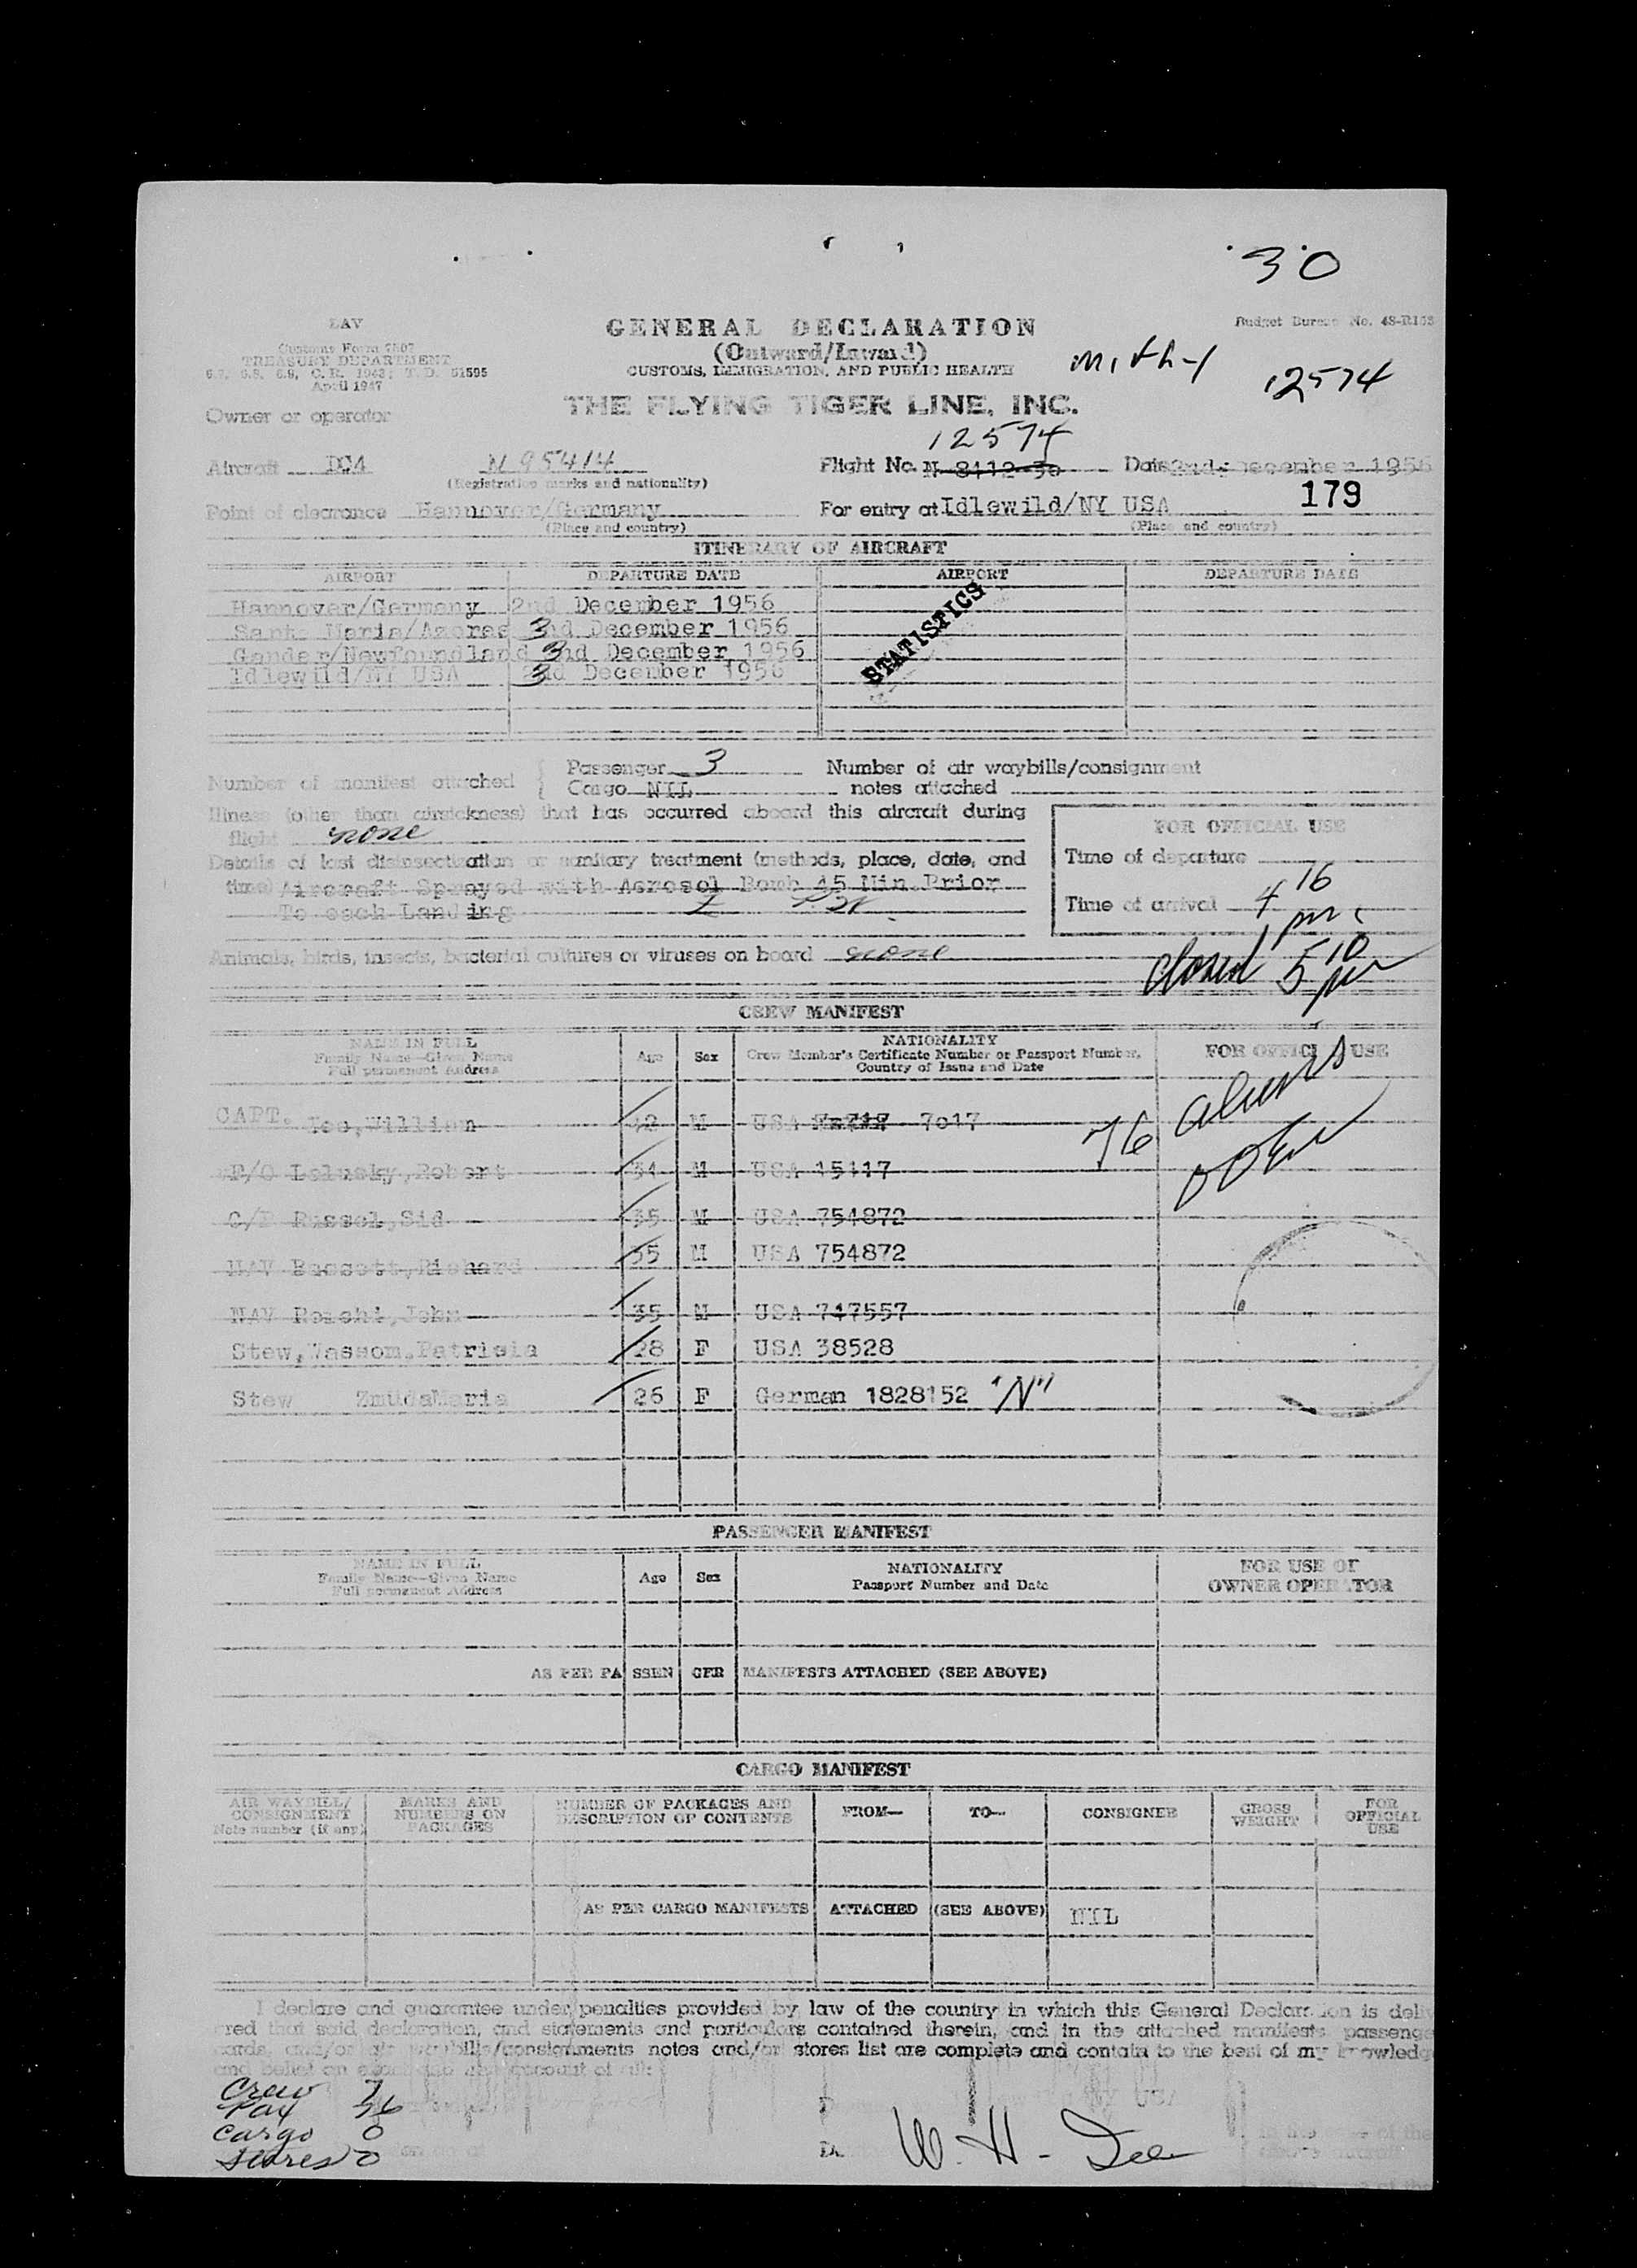 30
LAV
Customs Form 7507
TREASURY DEPARTMENT
6.7, 6.8, 6.9, C. R. 1943; T. D. 51595
April 1947
GENERAL DECLARATION
(Outward/Inward)
CUSTOMS, IMMIGRATION, AND PUBLIC HEALTH
Budget Bureau No. 48-R103
12574
Owner or operator
THE FLYING TIGER LINE, INC.
12574
Aircraft DC4 N95414 Flight No. N-8112-30 Date 2nd. December 1956
(Registration marks and nationality)
179
Point of clearance Hannover/Germany For entry at Idlewild/NY USA
(Place and country) (Place and country)
ITINERARY OF AIRCRAFT
AIRPORT DEPARTURE DATE AIRPORT DEPARTURE DATE
Hannover/Germany 2nd December 1956
Santa Maria/Azores 3nd December 1956
Gander/Newfoundland 3nd December 1956
Idlewild/NY USA 3nd December 1956
STATISTICS
Number of manifest attached { Passenger 3 Number of air waybills/consignment
Cargo NIL notes attached
Illness (other than airsickness) that has occurred aboard this aircraft during
flight none
Details of last disinsectization or sanitary treatment (methods, place, date, and
time) Aircraft Sprayed with Aerosol Bomb 45 Min. Prior
To each Landing
FOR OFFICIAL USE
Time of departure
Time of arrival 4 16 pm
closed 5 10 pm
Animals, birds, insects, bacterial cultures or viruses on board none
CREW MANIFEST
NAME IN FULL
Family Name—Given Name
Full permanent Address
Age Sex
NATIONALITY
Crew Member's Certificate Number or Passport Number,
Country of Issue and Date
FOR OFFICIAL USE
CAPT. Lee, William 42 M USA 7o17
76 aliens
F/O Lelusky, Robert 34 M USA 15117
C/P Russel, Sid 35 M USA 754872
NAV Bassett, Richard 35 M USA 754872
NAV Roschi, John 35 M USA 747557
Stew, Wassom. Patricia 28 F USA 38528
Stew ZmudaMaria 26 F German 1828152 "N"
PASSENGER MANIFEST
NAME IN FULL
Family Name—Given Name
Full permanent Address
Age Sex
NATIONALITY
Passport Number and Date
FOR USE OF
OWNER OPERATOR
AS PER PASSENGER MANIFESTS ATTACHED (SEE ABOVE)
CARGO MANIFEST
AIR WAYBILL/
CONSIGNMENT
Note number (if any)
MARKS AND
NUMBERS ON
PACKAGES
NUMBER OF PACKAGES AND
DESCRIPTION OF CONTENTS
FROM— TO— CONSIGNEE
GROSS
WEIGHT
FOR
OFFICIAL
USE
AS PER CARGO MANIFESTS ATTACHED (SEE ABOVE) NIL
I declare and guarantee under penalties provided by law of the country in which this General Declaration is deliv
ered that said declaration, and statements and particulars contained therein, and in the attached manifests passenge
cards, and/or air waybills/consignments notes and/or stores list are complete and contain to the best of my knowledg
and belief an account of all:
Crew 7
Pax 76
Cargo 0
Stores 0
W. H. Lee